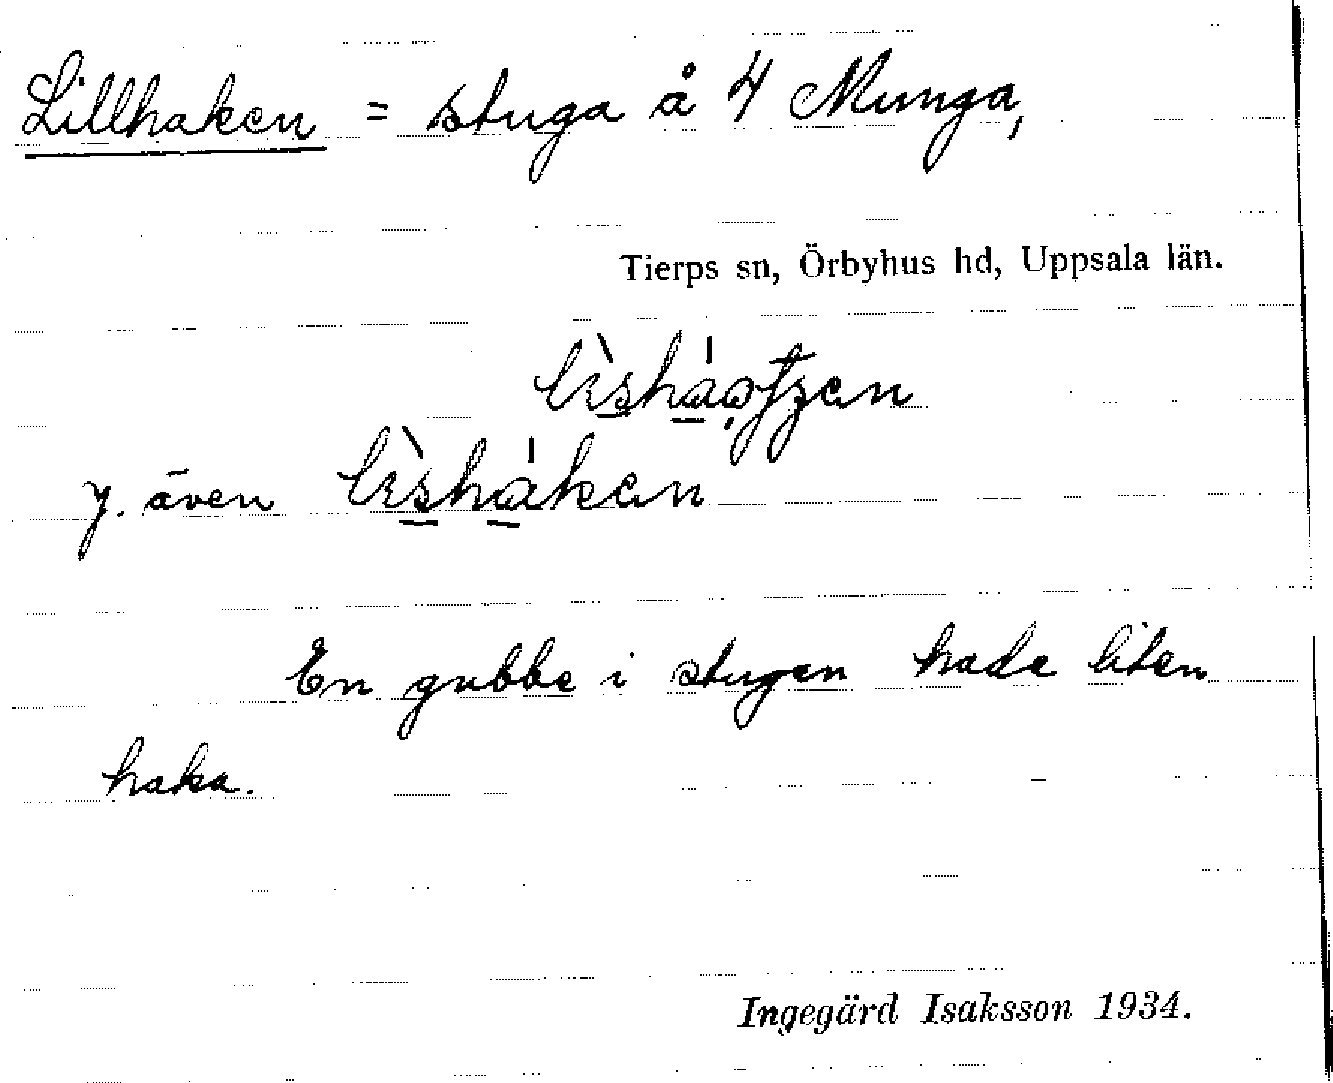 Lillhaken = stuga å 4 Munga,
Tierps sn, Örbyhus hd, Uppsala län.
y. även
En gubbe i stugen hade liten
haka.
Ingegärd Isaksson 1934.